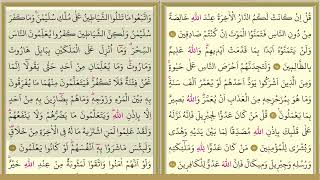 قُلْ إِن كَانَتْ لَكُمُ ٱلدَّارُ ٱلْءَاخِرَةُ عِندَ ٱللَّهِ خَالِصَةً
مِّن دُونِ ٱلنَّاسِ فَتَمَنَّوُا۟ ٱلْمَوْتَ إِن كُنتُمْ صَٰدِقِينَ
وَلَن يَتَمَنَّوْهُ أَبَدًۢا بِمَا قَدَّمَتْ أَيْدِيهِمْ وَٱللَّهُ عَلِيمٌۢ
بِٱلظَّٰلِمِينَ وَلَتَجِدَنَّهُمْ أَحْرَصَ ٱلنَّاسِ عَلَىٰ حَيَوٰةٍ
وَمِنَ ٱلَّذِينَ أَشْرَكُوا۟ يَوَدُّ أَحَدُهُمْ لَوْ يُعَمَّرُ أَلْفَ سَنَةٍ
وَمَا هُوَ بِمُزَحْزِحِهِۦ مِنَ ٱلْعَذَابِ أَن يُعَمَّرَ وَٱللَّهُ بَصِيرٌۢ بِمَا
يَعْمَلُونَ قُلْ مَن كَانَ عَدُوًّا لِّجِبْرِيلَ فَإِنَّهُۥ نَزَّلَهُۥ
عَلَىٰ قَلْبِكَ بِإِذْنِ ٱللَّهِ مُصَدِّقًا لِّمَا بَيْنَ يَدَيْهِ وَهُدًى
وَبُشْرَىٰ لِلْمُؤْمِنِينَ مَن كَانَ عَدُوًّا لِّلَّهِ وَمَلَٰٓئِكَتِهِۦ
وَرُسُلِهِۦ وَجِبْرِيلَ وَمِيكَىٰلَ فَإِنَّ ٱللَّهَ عَدُوٌّ لِّلْكَٰفِرِينَ
وَٱتَّبَعُوا۟ مَا تَتْلُوا۟ ٱلشَّيَٰطِينُ عَلَىٰ مُلْكِ سُلَيْمَٰنَ وَمَا كَفَرَ
سُلَيْمَٰنُ وَلَٰكِنَّ ٱلشَّيَٰطِينَ كَفَرُوا۟ يُعَلِّمُونَ ٱلنَّاسَ
ٱلسِّحْرَ وَمَآ أُنزِلَ عَلَى ٱلْمَلَكَيْنِ بِبَابِلَ هَٰرُوتَ
وَمَٰرُوتَ وَمَا يُعَلِّمَانِ مِنْ أَحَدٍ حَتَّىٰ يَقُولَآ إِنَّمَا
نَحْنُ فِتْنَةٌ فَلَا تَكْفُرْ فَيَتَعَلَّمُونَ مِنْهُمَا مَا يُفَرِّقُونَ
بِهِۦ بَيْنَ ٱلْمَرْءِ وَزَوْجِهِۦ وَمَا هُم بِضَآرِّينَ بِهِۦ مِنْ أَحَدٍ
إِلَّا بِإِذْنِ ٱللَّهِ وَيَتَعَلَّمُونَ مَا يَضُرُّهُمْ وَلَا يَنفَعُهُمْ
وَلَقَدْ عَلِمُوا۟ لَمَنِ ٱشْتَرَىٰهُ مَا لَهُۥ فِى ٱلْءَاخِرَةِ مِنْ خَلَٰقٍ
وَلَبِئْسَ مَا شَرَوْا۟ بِهِۦٓ أَنفُسَهُمْ لَوْ كَانُوا۟ يَعْلَمُونَ
وَلَوْ أَنَّهُمْ ءَامَنُوا۟ وَٱتَّقَوْا۟ لَمَثُوبَةٌ مِّنْ عِندِ ٱللَّهِ خَيْرٌ